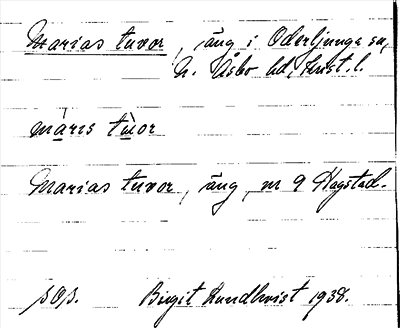 Marias tuvor, äng i Oderljunga sn,
N. Åsbo hd, Krist. l.
màrıs tùor
Marias tuvor, äng, nr 9 Hagstad.
sqs. Birgit Lundkvist 1938.